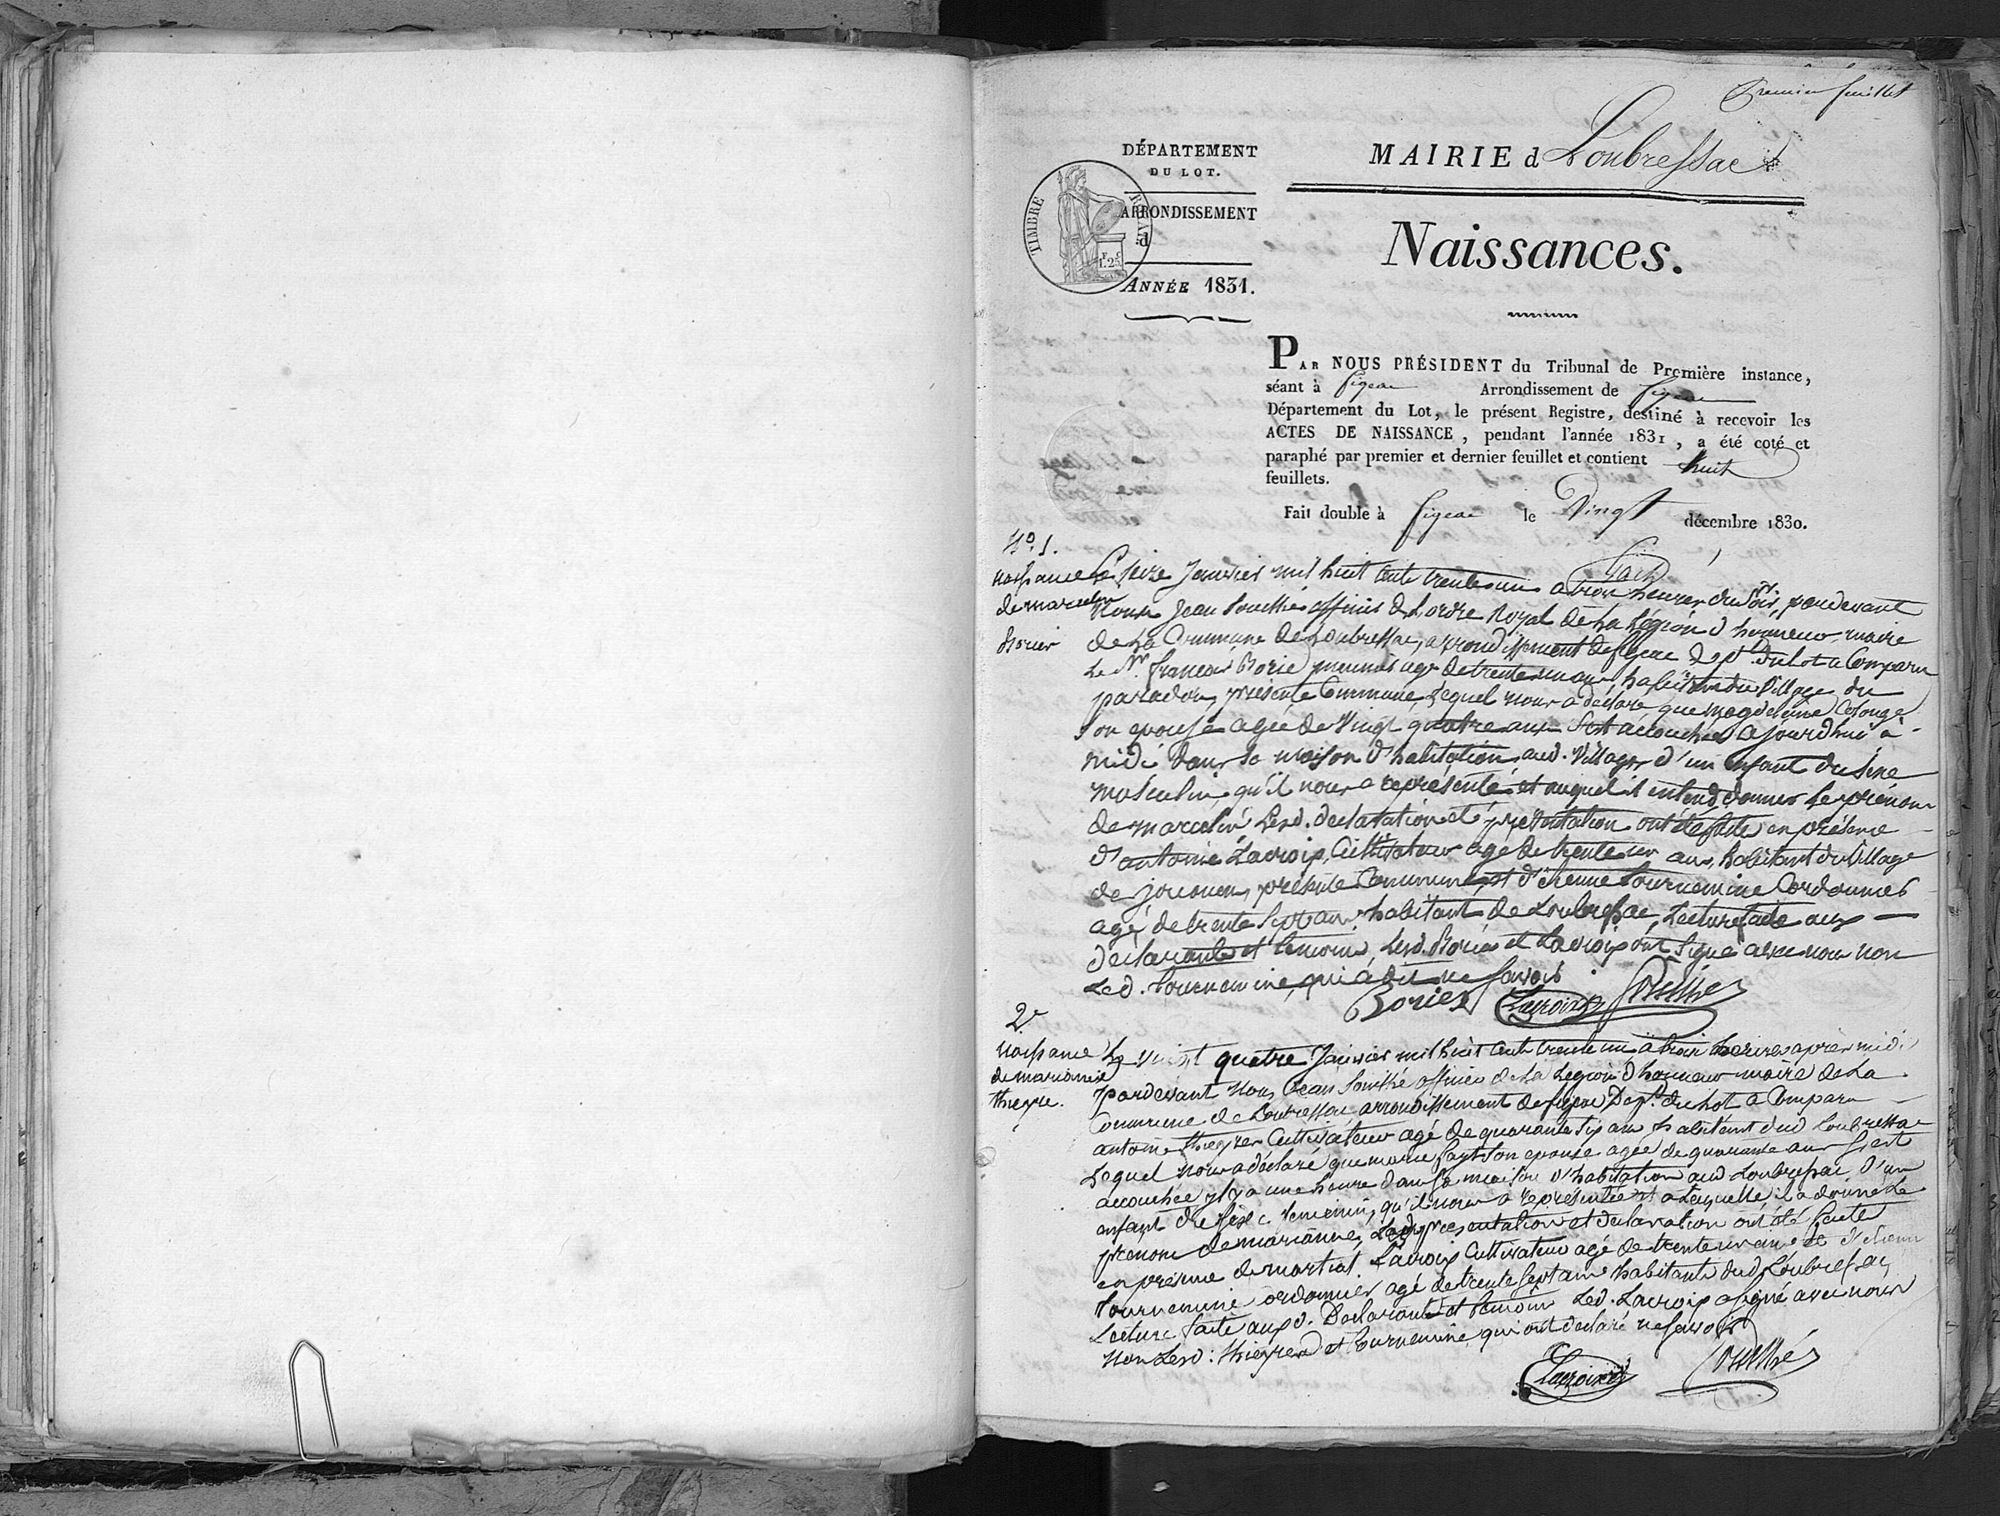 Premier feuillet
DÉPARTEMENT
DU LOT.
ARRONDISSEMENT
d
ANNÉE 1831.
TIMBRE ROYAL
MAIRIE d Loubressac
Naissances.
PAR NOUS PRÉSIDENT du Tribunal de Première instance,
séant à figeac Arrondissement de figeac
Département du Lot, le présent Registre, destiné à recevoir les
ACTES DE NAISSANCE, pendant l'année 1831, a été coté et
paraphé par premier et dernier feuillet et contient huit
feuillets.
Fait double à figeac le Vingt décembre 1830.
N.o 1.
naissance
de marcelin
Borier
Le seize Janvier mil huit cent trente un a trois heures du soir, pardevant
Nous Jean Souilhé officier de L'ordre Royal de La Légion d'honneur maire
de La Commune de Loubressac, arrondissement de figeac Dept. du Lot a Comparu
Le Sr. françois Borie age de trente habitant du Village du
présente Commune, Lequel nous a déclaré que magdeleine
Son epouse agée de Vingt quatre ans S'est accouchée ajourdhui à
midi dans sa maison d'habitation aud. Village d'un enfant du sexe
masculin, qu'il nous a représenté et auquel il entend donner Le prénom
de marcelin, Lesd. declaration et présentation ont été faite en présence
d'antoine Lacroix, Cultivateur agé de trente ans, habitant du Village
de présente Commune, et d'étienne tournemine Cordonnier
agé de trente Sept ans habitant de Loubressac, Lecture faite aux
déclarants et temoins, Lesd. Borie et Lacroix ont signé avec nous non
Led. tournemine, qui a dit ne savoir
Borier Lacroix Souilhé
2e
naissance
de marianne
thieyre.
Le vingt quatre Janvier mil huit cent trente un a trois heures après midi
pardevant Nous Jean Souilhé officier de La Legion d'honneur maire de La
Commune de Loubressac arrondissement de figeac Dept. du Lot a Comparu
antoine Cultivateur agé de quarante six ans habitant dud. Loubressac
Lequel nous a déclaré que marie son epouse agée de quarante ans S'est
accouchée il y a une heure dans sa maison d'habitation aud. Loubressac d'un
enfant du sexe femenin, qu'il nous a représentée et a Laquelle il a donné Le
prenom de marianne, Lesd. presentation et declaration ont été faite
en présence de martial Lacroix Cultivateur agé de trente ans et d'étienne
tournemine cordonnier agé de trente Sept ans habitants dud. Loubressac,
Lecture faite auxd. Declarant et temoins Led. Lacroix a signé avec nous
Non Lesd: et tournemine qui ont declaré ne savoir
Lacroix Souilhé